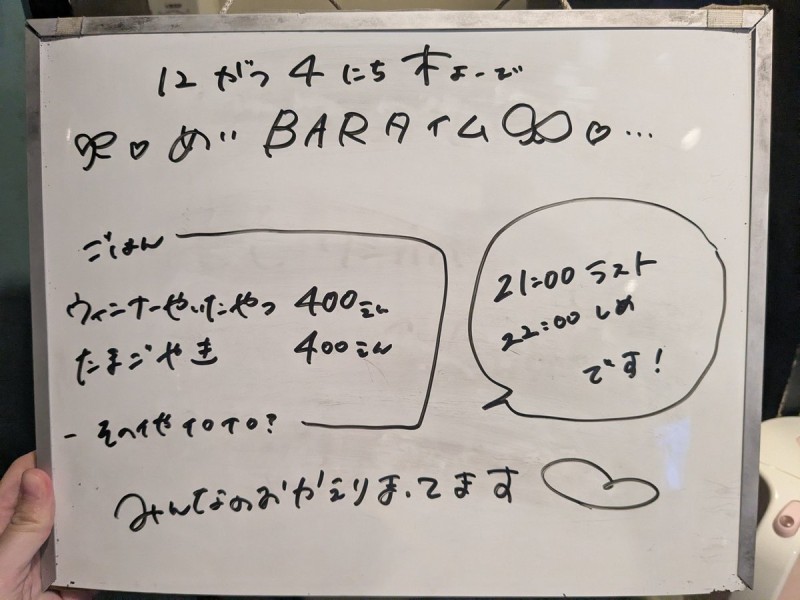 12がつ4にち木よーび
♡めいBARタイム♡…
ごはん
ウィンナーやいたやつ 400えん
たまごやき 400えん
－そのイやイロイロ?
21:00ラスト
22:00しめ
です!
みんなのおかえりまってます